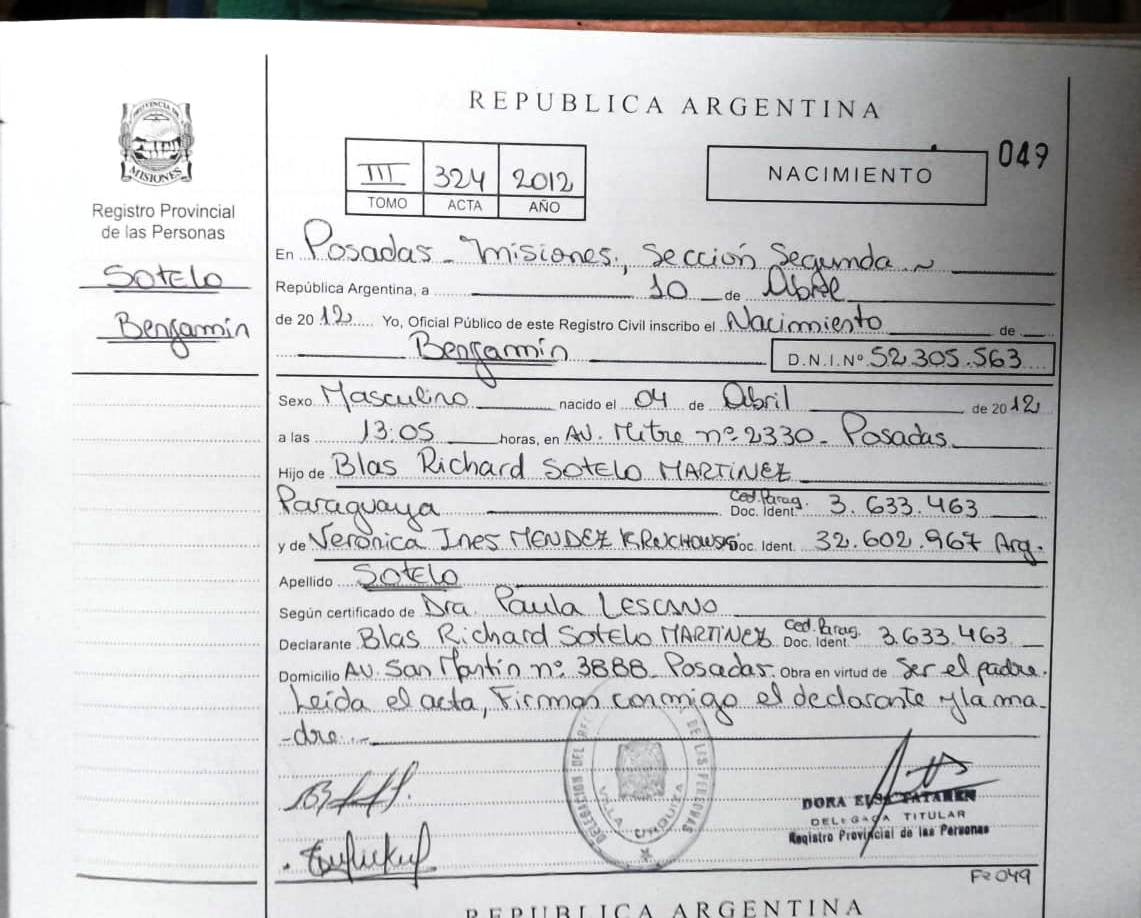 REPUBLICA ARGENTINA
PROVINCIA DE
MISIONES
Registro Provincial
de las Personas
SOTELO
Benjamín
III 324 2012
TOMO ACTA AÑO
NACIMIENTO
049
En Posadas - Misiones, Sección Segunda
República Argentina, a 10 de Abril
de 2012 Yo, Oficial Público de este Registro Civil inscribo el Nacimiento de
Benjamín D.N.I.Nº 52.305.563
Sexo Masculino nacido el 04 de Abril de 2012
a las 13:05 horas, en AV. Mitre nº 2330 - Posadas
Hijo de Blas Richard SOTELO MARTINEZ
Paraguaya Ced. Parag. Doc. Ident. 3.633.463
y de Verónica Ines MENDEZ Doc. Ident. 32.602.967 Arg.
Apellido SOTELO
Según certificado de Dra. Paula LESCANO
Declarante Blas Richard SOTELO MARTINEZ Ced. Parag. Doc. Ident. 3.633.463
Domicilio AV. San Martín nº 3888 - Posadas. Obra en virtud de Ser el padre.
Leída el acta, Firman conmigo el declarante y la ma-
-dre.
DELEGACION DEL DE LAS PERSONAS
VILLA URQUIZA
DORA ELSA
DELEGADA TITULAR
Registro Provincial de las Personas
Fº 049
REPUBLICA ARGENTINA